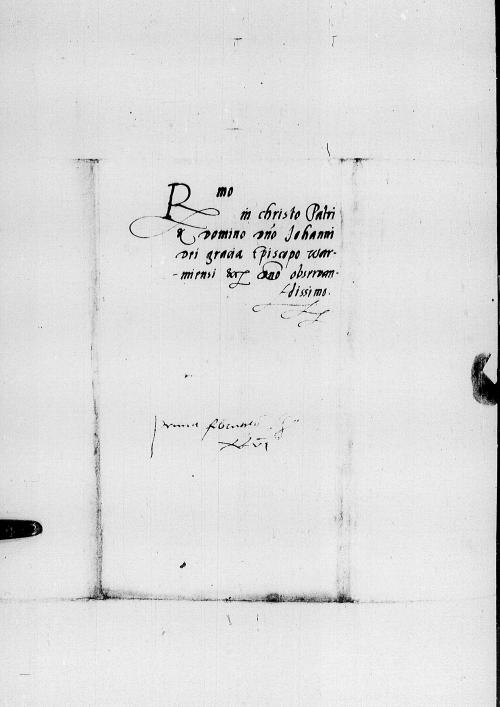 Rmo
in christo Patri
& Domino dno Johanni
Dei gracia Episcopo War-
-miensi &c dno obseruan-
dissimo.